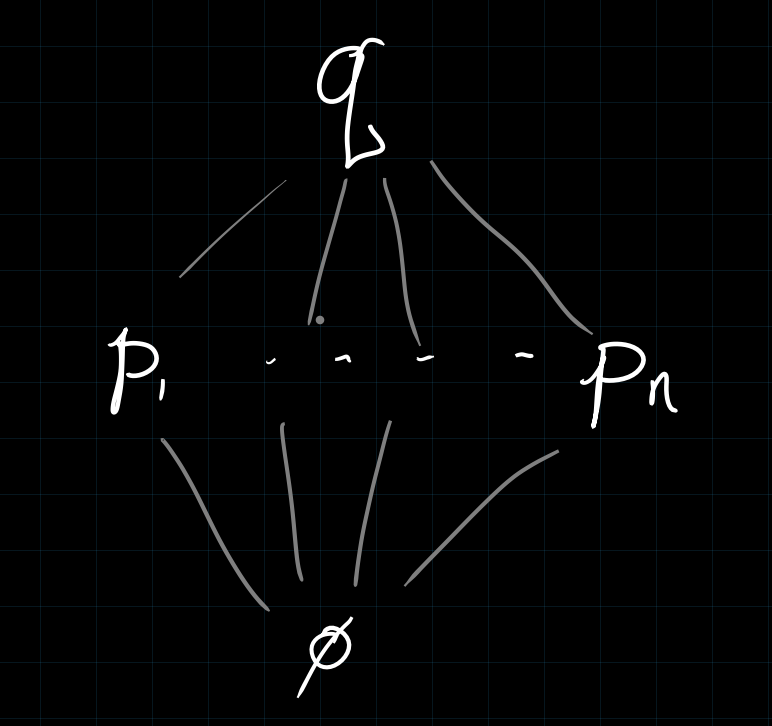 q
p₁ - - - - pₙ
∅